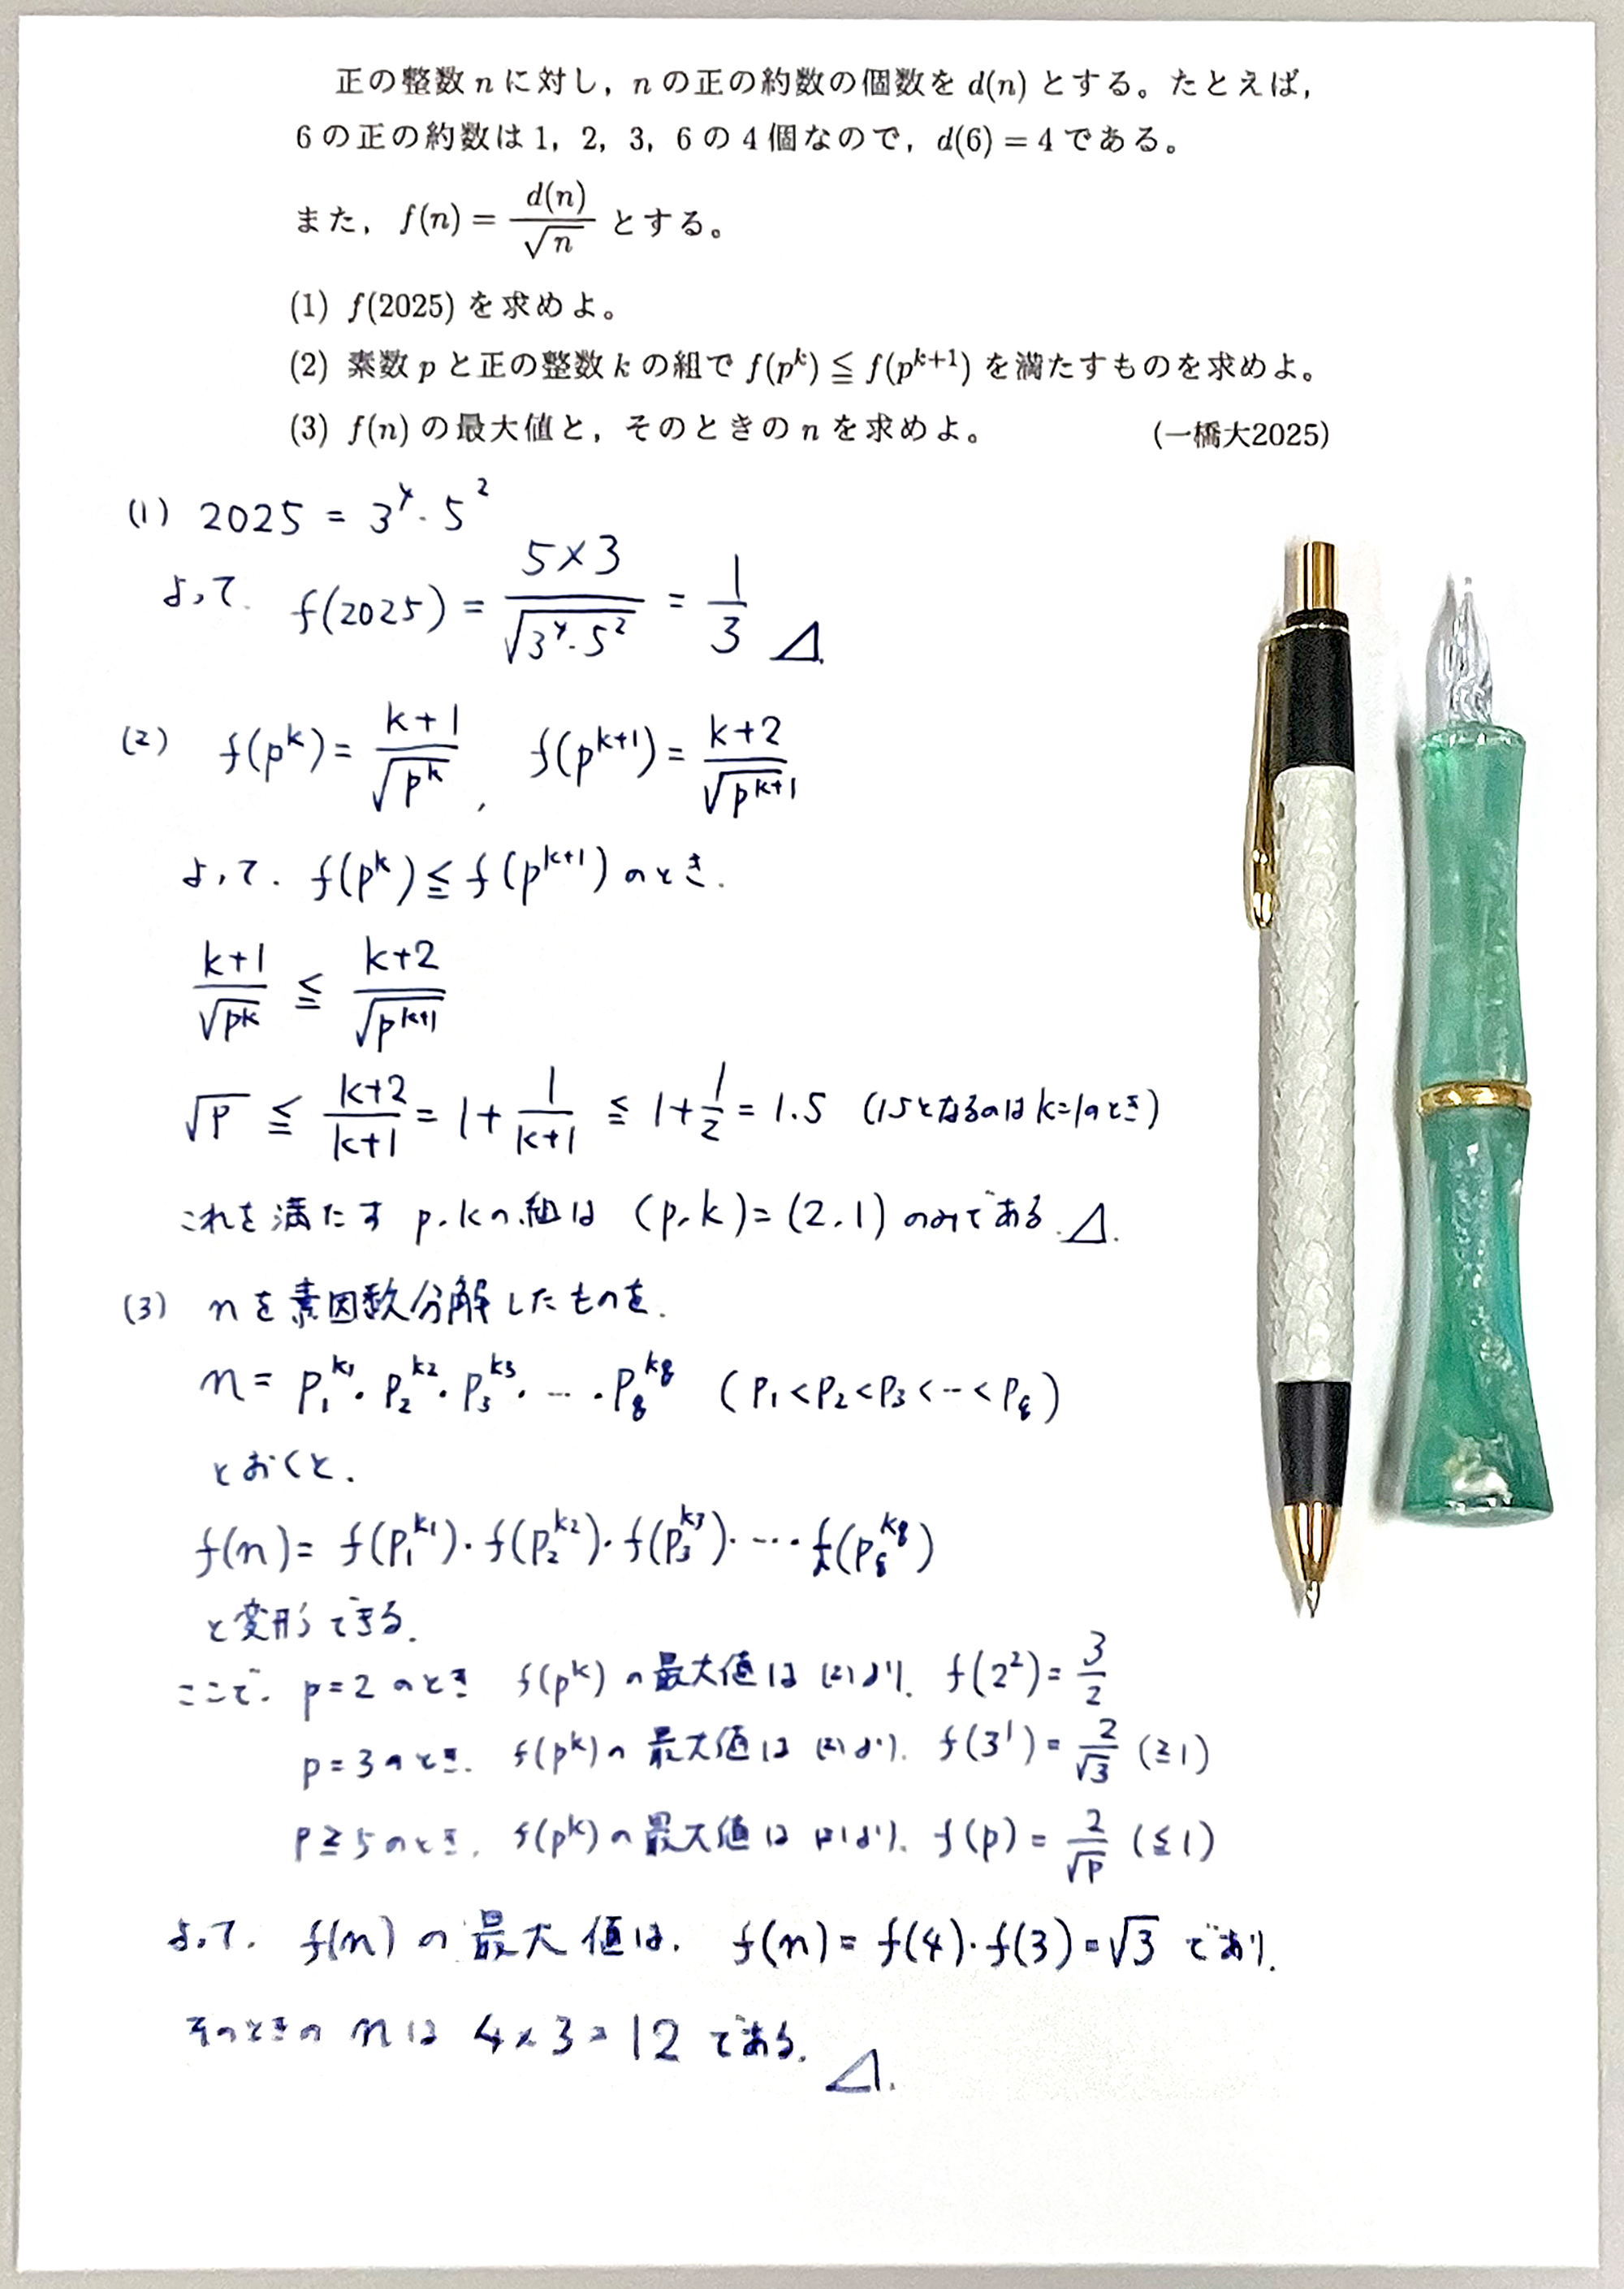 正の整数 n に対し，n の正の約数の個数を d(n) とする。たとえば，
6 の正の約数は 1，2，3，6 の 4 個なので，d(6) = 4 である。
また，f(n) = d(n)/√n とする。
(1) f(2025) を求めよ。
(2) 素数 p と正の整数 k の組で f(p^k) ≦ f(p^{k+1}) を満たすものを求めよ。
(3) f(n) の最大値と，そのときの n を求めよ。 (一橋大2025)
(1) 2025 = 3^4・5^2
よって. f(2025) = (5×3)/√(3^4・5^2) = 1/3
(2) f(p^k) = (k+1)/√(p^k) , f(p^{k+1}) = (k+2)/√(p^{k+1})
よって. f(p^k) ≦ f(p^{k+1}) のとき.
(k+1)/√(p^k) ≦ (k+2)/√(p^{k+1})
√p ≦ (k+2)/(k+1) = 1 + 1/(k+1) ≦ 1 + 1/2 = 1.5 (1.5となるのは k=1のとき)
これを満たす p, kの組は (p, k) = (2, 1) のみである.
(3) n を素因数分解したものを.
n = p_1^{k_1}・p_2^{k_2}・p_3^{k_3}・…・p_g^{k_g} (p_1 < p_2 < p_3 < … < p_g)
とおくと.
f(n) = f(p_1^{k_1})・f(p_2^{k_2})・f(p_3^{k_3})・…・f(p_g^{k_g})
と変形できる.
ここで. p=2 のとき f(p^k) の最大値は (2)より. f(2^2) = 3/2
p=3のとき. f(p^k) の最大値は (2)より. f(3^1) = 2/√3 (≧1)
p≧5のとき. f(p^k) の最大値は (2)より. f(p) = 2/√p (≦1)
よって. f(n) の最大値は. f(n) = f(4)・f(3) = √3 であり.
そのときの n は 4×3 = 12 である.